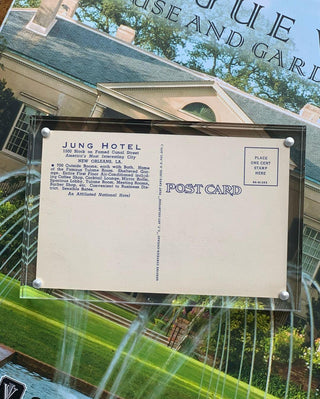 GUE V
USE AND GARD
JUNG HOTEL
1500 Block on Famed Canal Street
America's Most Interesting City
NEW ORLEANS, LA.
700 Outside Rooms, each with Bath. Home
of the Famous Tulane Room. Sheltered Gar-
age. Entire First Floor Air-Conditioned includ-
ing Coffee Shop, Cocktail Lounge, Mirror Balls,
Spacious Lobby, Tulane Room, Meeting Rooms,
Barber Shop, etc. Convenient to Business Dis-
trict. Sensible Rates.
An Affiliated National Hotel
POST CARD
PLACE
ONE CENT
STAMP
HERE